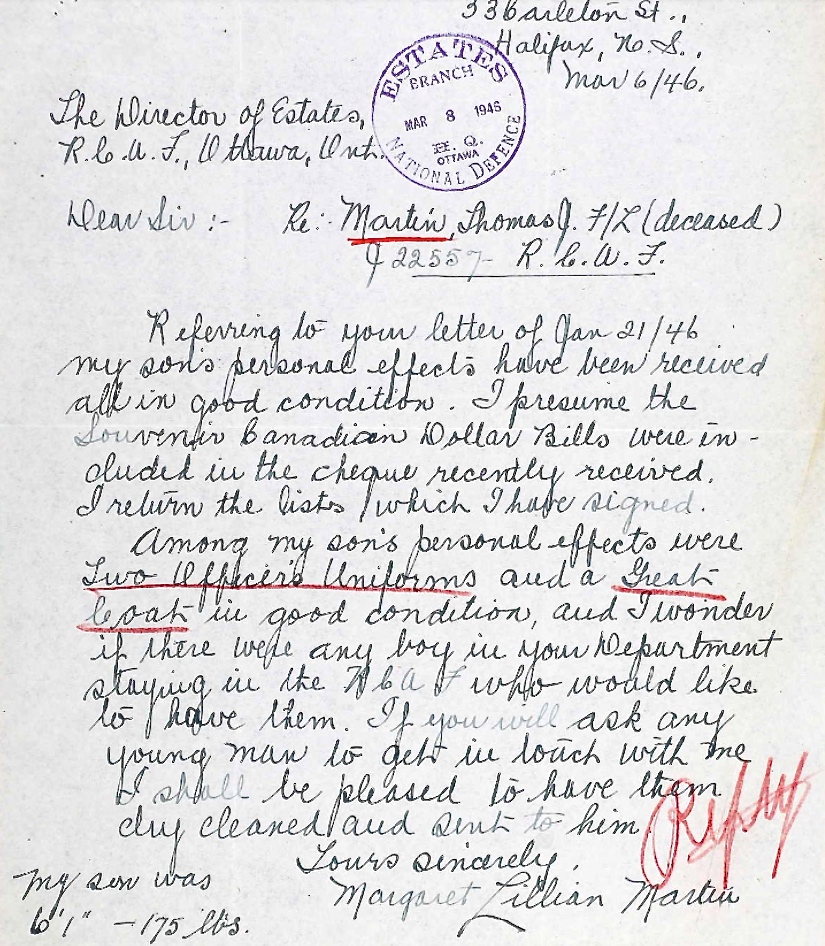 33 Carleton St.,
Halifax, N.S.,
Mar 6/46.
ESTATES
BRANCH
MAR 8 1946
H.Q.
OTTAWA
NATIONAL DEFENCE
The Director of Estates,
R.C.A.F., Ottawa, Ont.
Dear Sir :- Re:- Martin, Thomas J. F/L (deceased)
J 22557 - R.C.A.F.
Referring to your letter of Jan 21/46
my son's personal effects have been received
all in good condition. I presume the
Souvenir Canadian Dollar Bills were in-
cluded in the cheque recently received.
I return the lists which I have signed.
Among my son's personal effects were
Two Officer's Uniforms and a Great
Coat in good condition, and I wonder
if there were any boy in your Department
staying in the R C A F who would like
to have them. If you will ask any
young man to get in touch with me
I shall be pleased to have them
dry cleaned and sent to him.
Reply
Yours sincerely,
Margaret Lillian Martin
My son was
6'1" - 175 lbs.